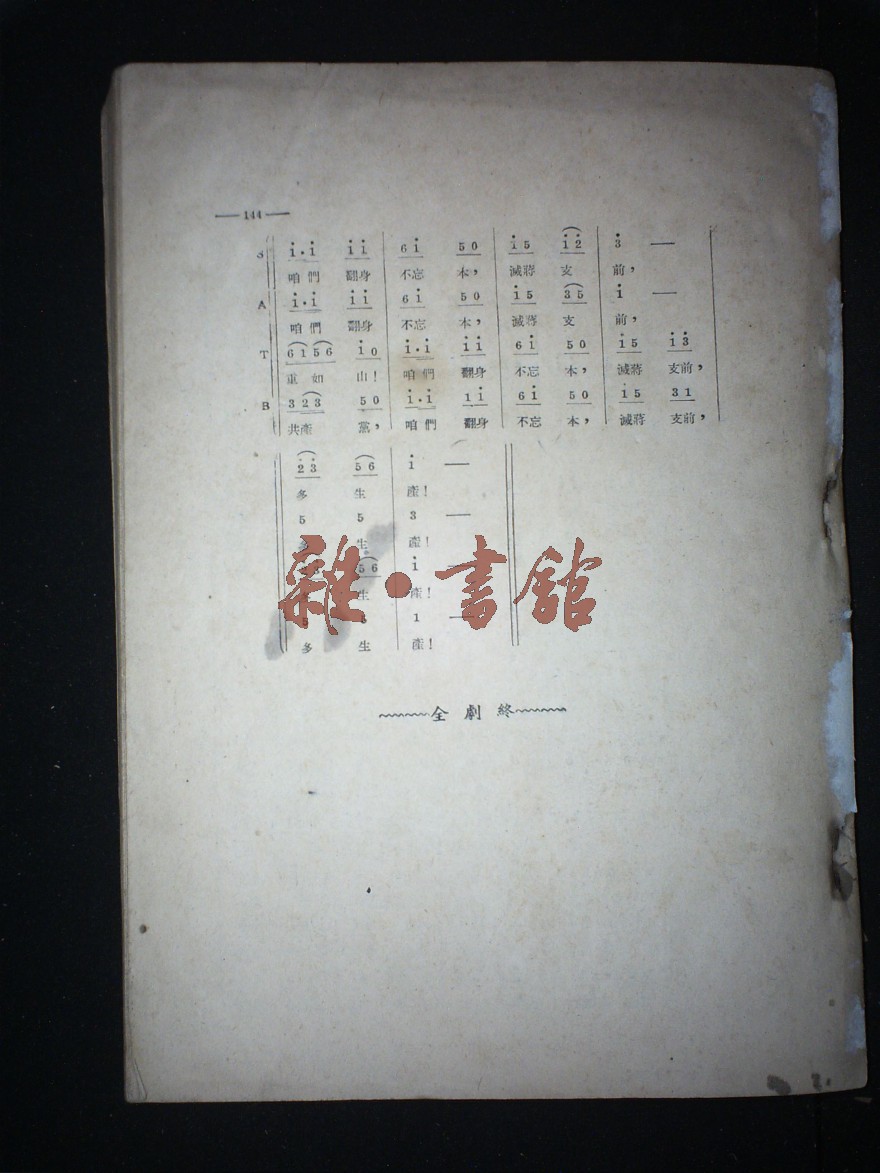 —144—
S i·i ii 6i 50 i5 i2 3 —
咱們 翻身 不忘 本, 滅蔣 支 前,
A i·i ii 6i 50 i5 35 i —
咱們 翻身 不忘 本, 滅蔣 支 前,
T 6156 i0 i·i ii 6i 50 i5 i3
重如 山! 咱們 翻身 不忘 本, 滅蔣 支前,
B 323 50 i·i 1i 6i 50 i5 31
共產 黨, 咱們 翻身 不忘 本, 滅蔣 支前,
23 56 i —
多 生 產!
5 5 3 —
多 生 產!
56 i —
生 產!
1 —
多 生 產!
雜·書館
全劇終